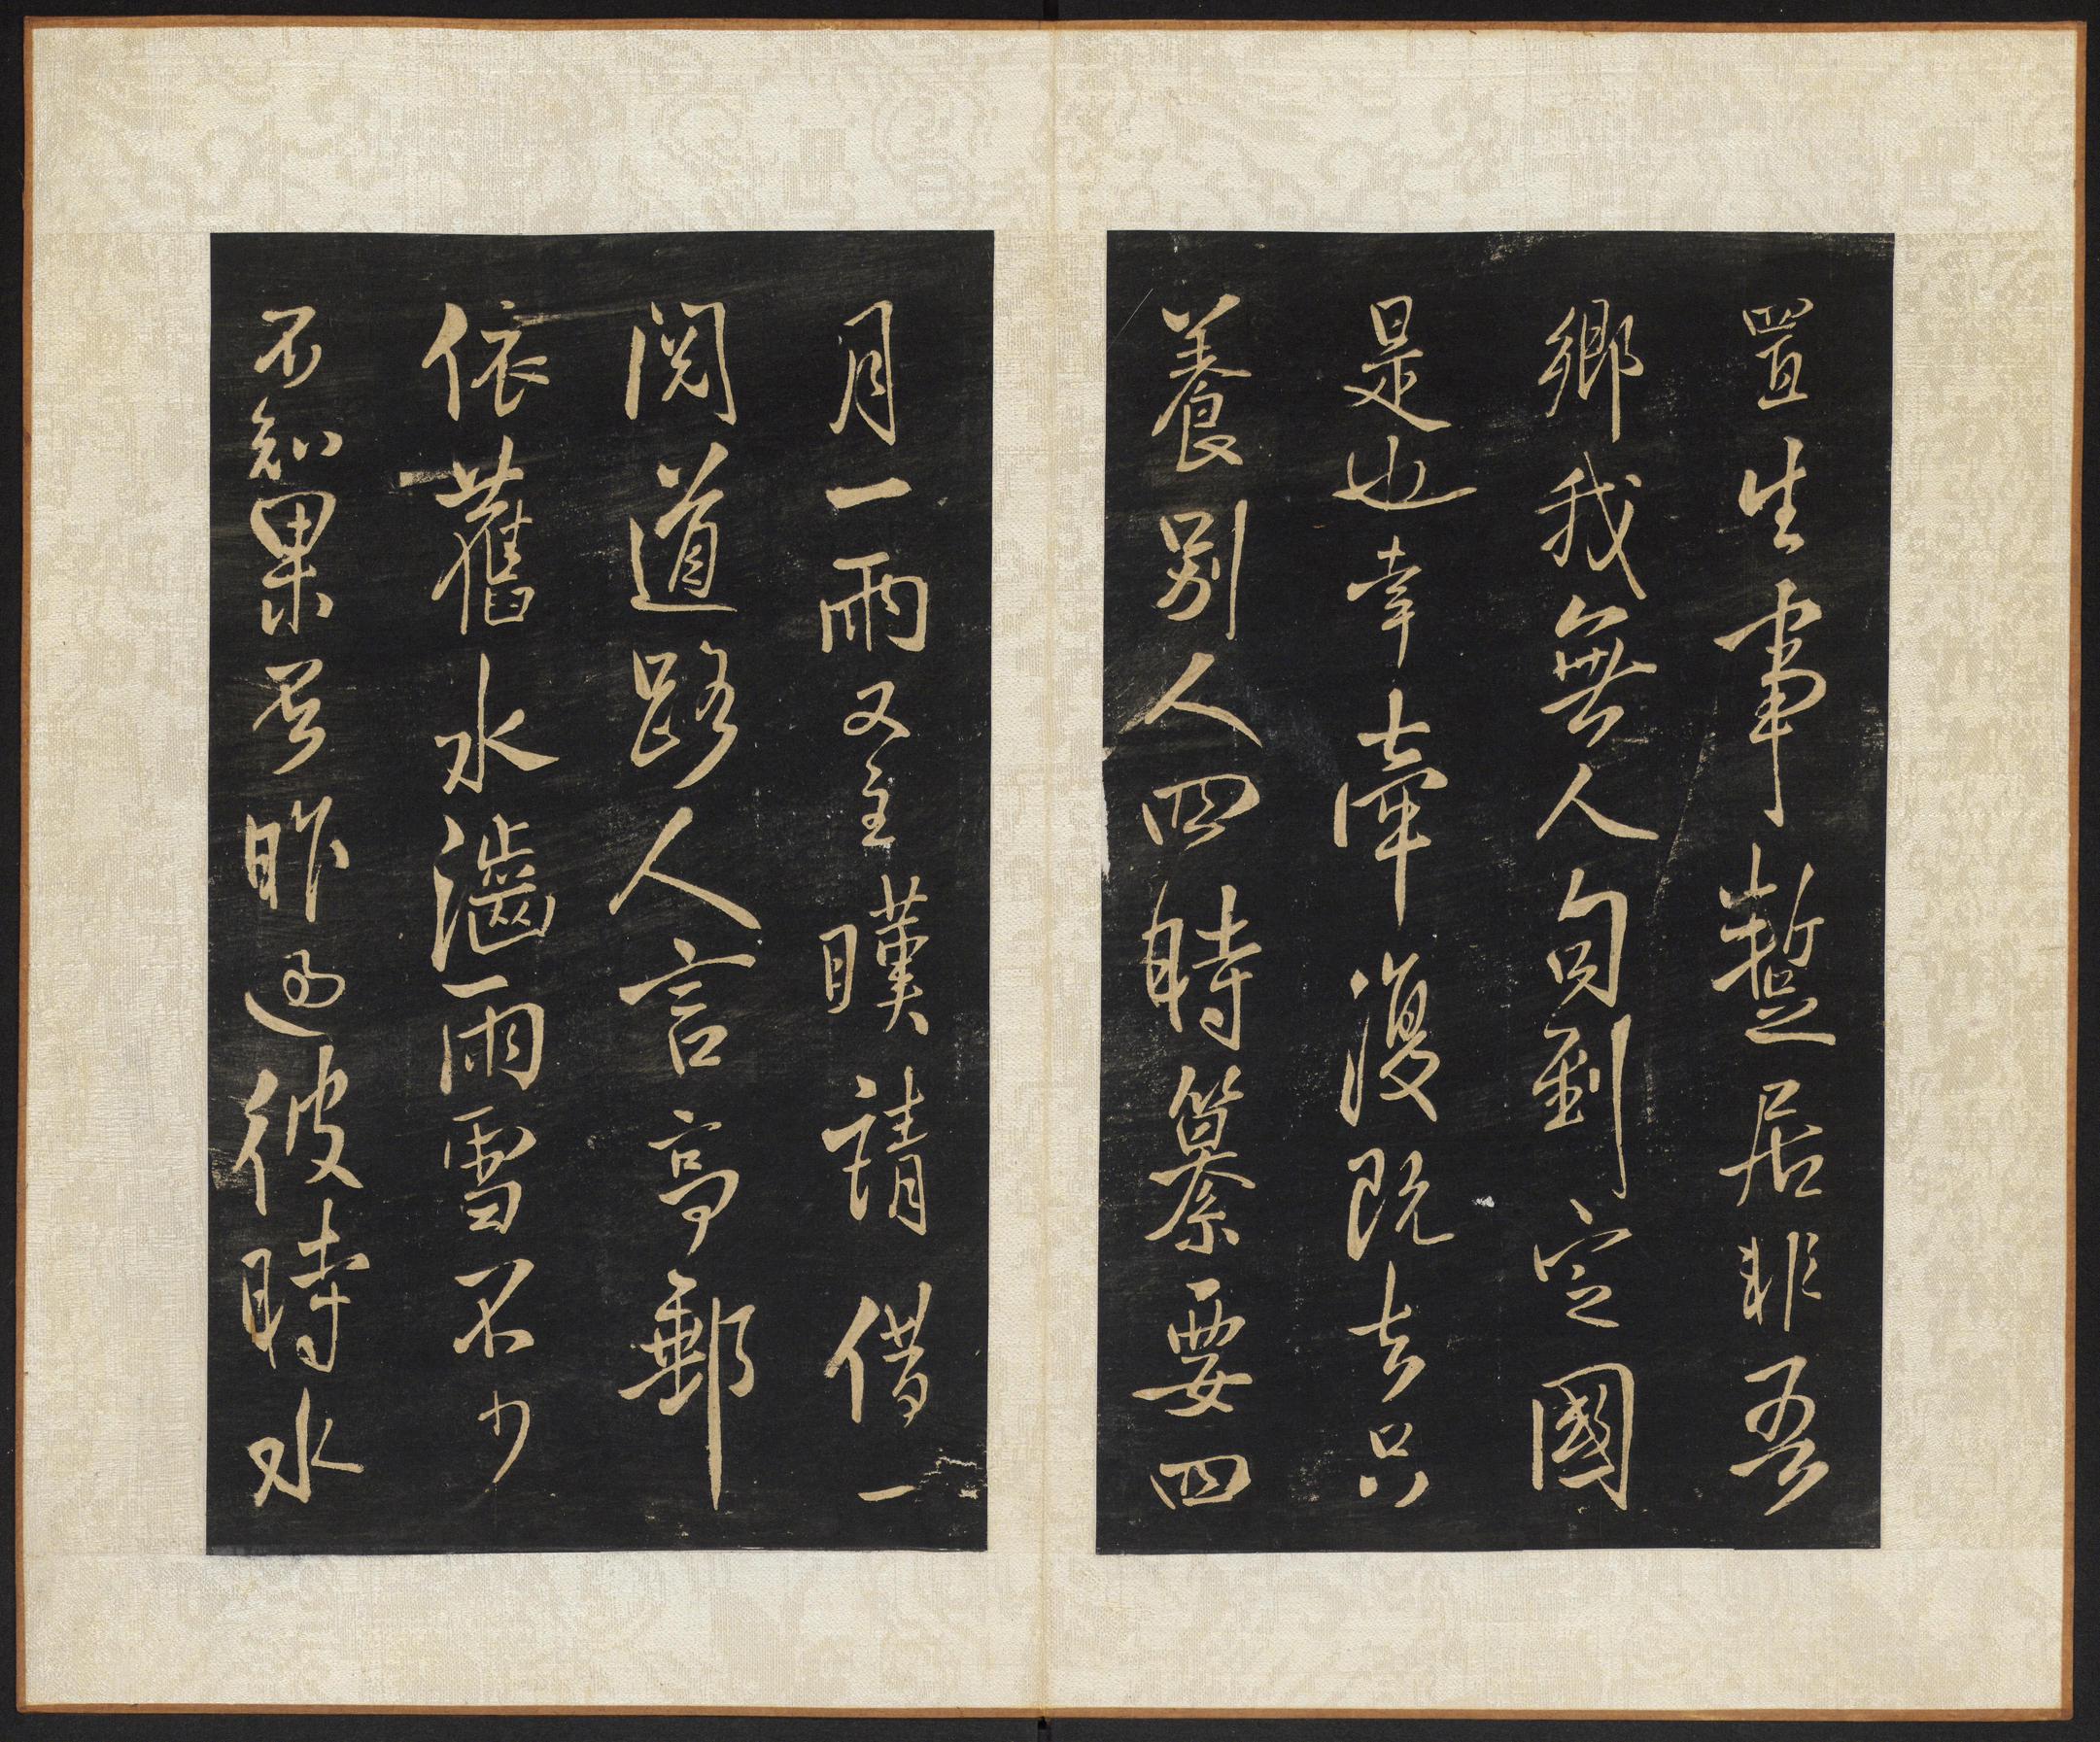 置生事蹔居非吾
鄉我無人勾到定國
是也幸牽復既去只
養別人四時纂要四
月一雨又至暵請借一
閱道路人言亭郵
依舊水澁雨雪不少
不知果若昨過彼時水